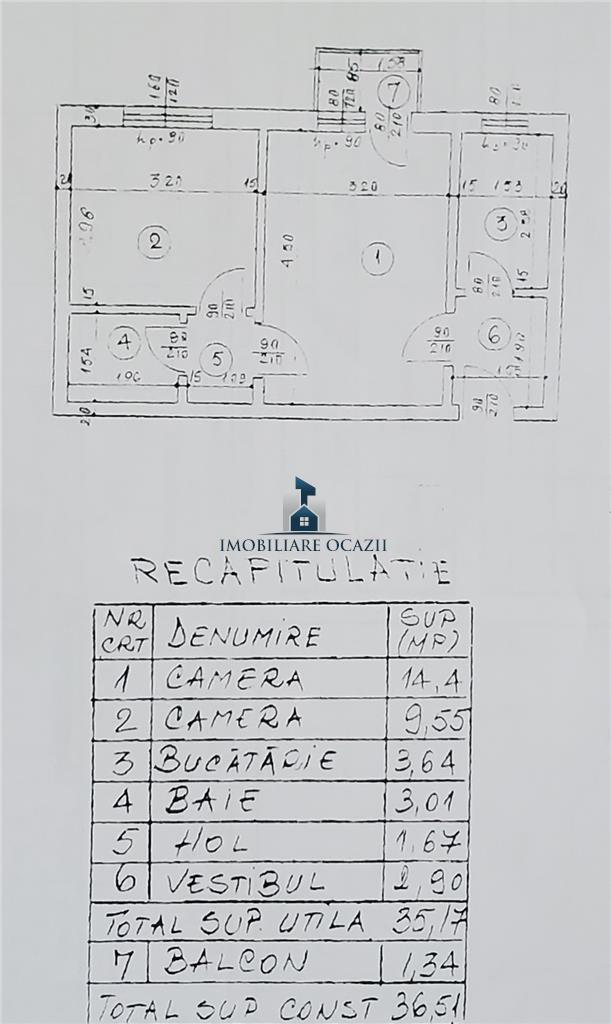 160
120
85
1.58
7
80
120
80
210
80
30
hp·90
hp·90
20
320
15
320
15
153
20
296
2
450
1
3
238
15
15
80
210
90
210
154
4
80
210
5
90
210
90
210
6
190
196
15
109
20
90
210
IMOBILIARE OCAZII
RECAPITULATIE
NR CRT DENUMIRE SUP (MP)
1 CAMERA 14,4
2 CAMERA 9,55
3 BUCĂTĂRIE 3,64
4 BAIE 3,01
5 HOL 1,67
6 VESTIBUL 2,90
TOTAL SUP. UTILA 35,17
7 BALCON 1,34
TOTAL SUP CONST 36,51